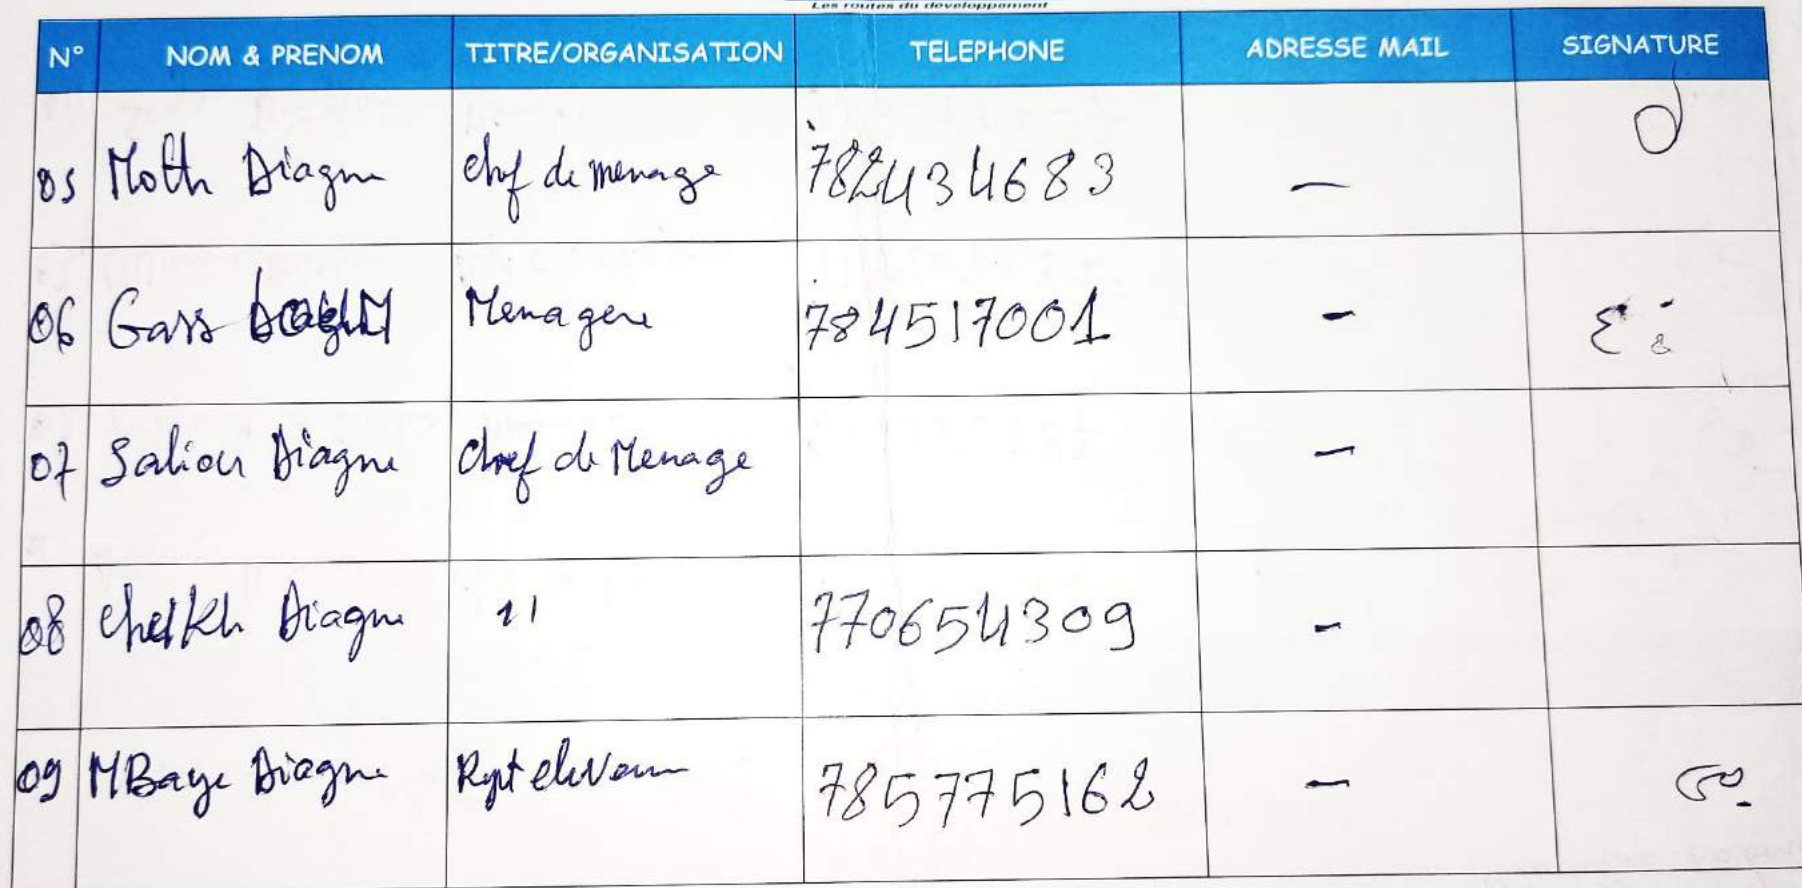 Les routes du développement
N° NOM & PRENOM TITRE/ORGANISATION TELEPHONE ADRESSE MAIL SIGNATURE
05 Moth Diagne chef de menage 782434683 —
06 Gass Menagere 784517001 -
07 Saliou Diagne chef de Menage —
08 cheikh Diagne 11 770654309 -
09 MBaye Diagne 785775162 —